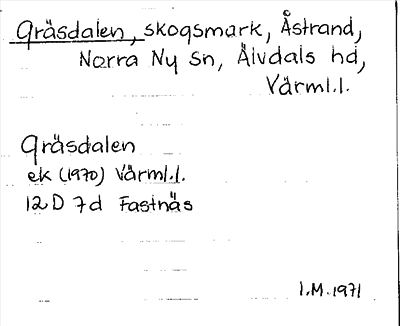 Gräsdalen, skogsmark, Åstrand,
Norra Ny Sn, Älvdals hd,
Värml.l.
Gräsdalen
ek (1970) Värml.l.
12D 7d Fastnäs
I.M. 1971